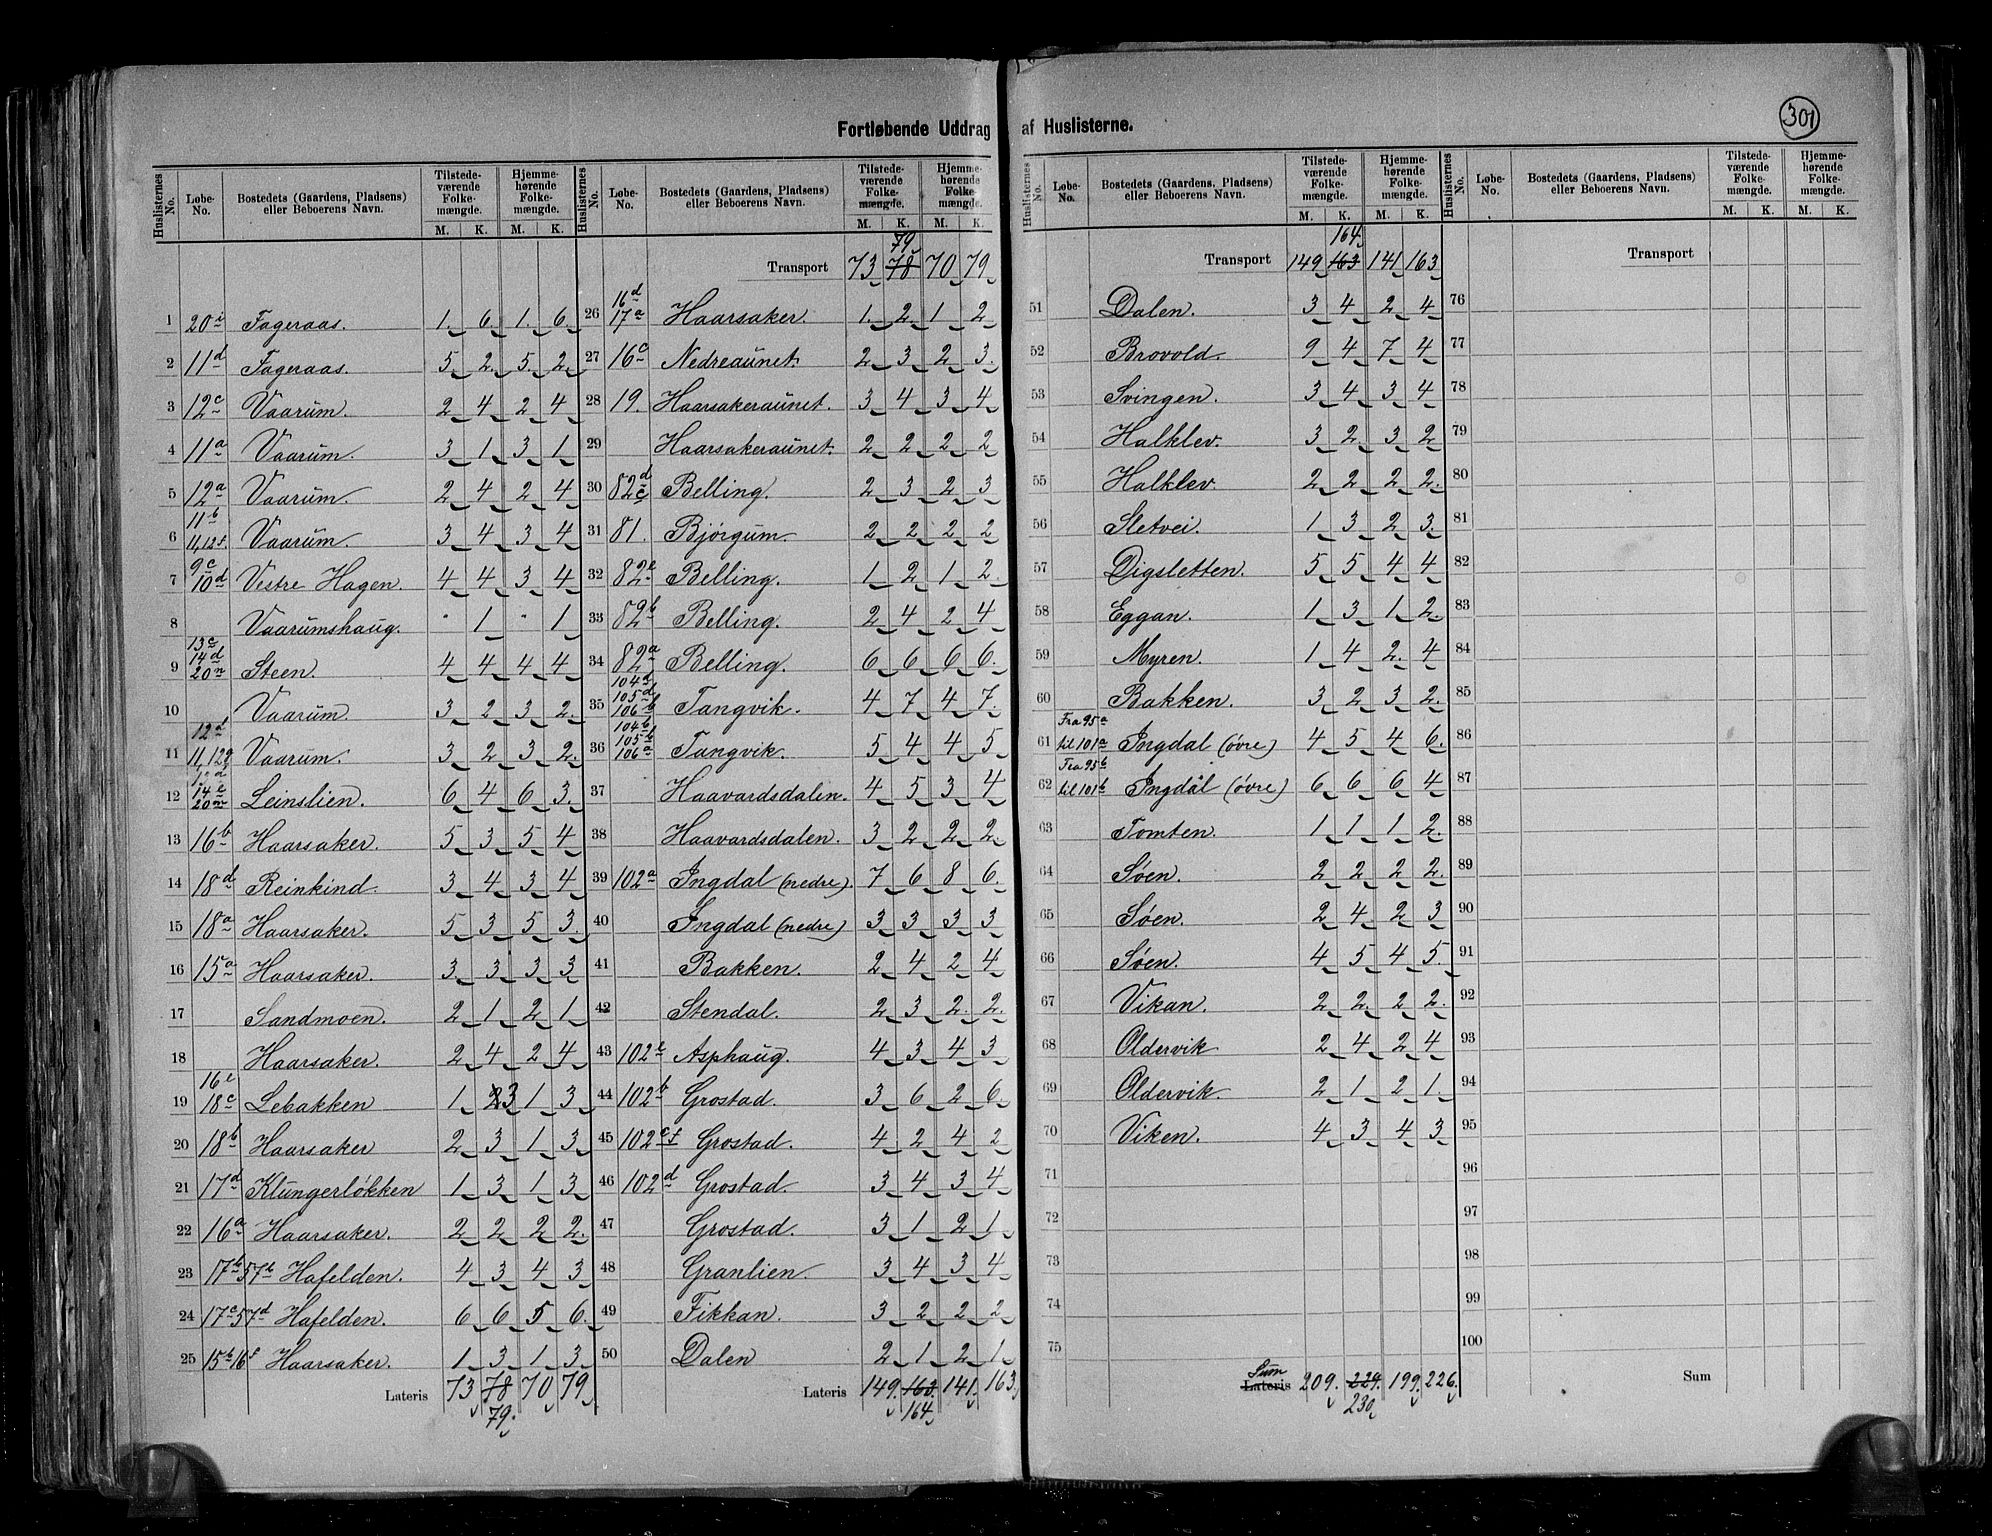 Fortløbende Uddrag af Huslisterne.
301
Huslisternes No. | Løbe-No. | Bostedets (Gaardens, Pladsens) eller Beboerens Navn. | Tilstede-værende Folke-mængde. M. K. | Hjemme-hørende Folke-mængde. M. K.
1 20i Fageraas. 1. 6. 1. 6.
2 11d Fageraas. 5. 2. 5. 2.
3 12c Vaarum. 2 4 2 4
4 11a Vaarum. 3 1 3 1
5 12a Vaarum. 2 4 2 4
6 11b 11,12f. Vaarum. 3 4 3 4
7 9c 10d Vestre Hagen. 4 4 3 4
8 Vaarumshaug. " 1 " 1
9 13c 14d 20n Steen. 4 4 4 4
10 Vaarum. 3 2 3 2.
11 12d 11,12g Vaarum. 3 2 3 2.
12 13d 14e 20m Leinslien. 6 4 6 3.
13 16b Haarsaker. 5 3 5 4
14 18d Reinkind. 3 4 3 4
15 18a Haarsaker. 5 3 5 3.
16 15a Haarsaker. 3 3 3 3
17 Sandmoen. 2 1 2 1
18 Haarsaker. 2 4 2 4
19 16e 18c Lebakken 1 2 3 1 3
20 18b Haarsaker 2 3 1 3
21 17d Klungerløkken 1 3 1 3
22 16a Haarsaker. 2 2 2 2.
23 17b 57b Hafelden. 4 3 4 3
24 17c 57d Hafelden. 6 6 5 6.
25 15b 16f Haarsaker. 1 3 1 3
Lateris 73 78 70 79
79.
Huslisternes No. | Løbe-No. | Bostedets (Gaardens, Pladsens) eller Beboerens Navn. | Tilstede-værende Folke-mængde. M. K. | Hjemme-hørende Folke-mængde. M. K.
79
Transport 73 78 70 79
26 16d 17a Haarsaker. 1. 2 1 2
27 16c Nedreaunet. 2 3 2 3.
28 19. Haarsakeraunet. 3 4 3 4
29 Haarsakeraunet. 2 2 2 2
30 82d c Belling. 2 3 2 3
31 81. Bjørgum. 2 2 2 2
32 82e Belling. 1 2 1 2.
33 82b Belling. 2 4 2 4
34 82a Belling. 6 6 6 6.
35 104d 105d 106b Tangvik. 4 7 4 7.
36 104b 105b 106a Tangvik. 5 4 4 5
37 Haavardsdalen. 4 5 3 4
38 Haavardsdalen. 3 2 2 2.
39 102a Ingdal (nedre). 7 6 8 6.
40 Ingdal (nedre) 3 3 3 3
41 Bakken. 2 4 2 4
42 Stendal. 2 3 2. 2.
43 102e Asphaug. 4 3 4 3
44 102b Grostad. 3 6 2 6.
45 102c f Grostad. 4 2 4 2
46 102d Grostad. 3 4 3 4
47 Grostad. 3 1 2 1
48 Granlien. 3 4 3 4
49 Fikkan. 3 2 2 2
50 Dalen 2 1 2 1
Lateris 149. 163. 141. 163.
164.
Huslisternes No. | Løbe-No. | Bostedets (Gaardens, Pladsens) eller Beboerens Navn. | Tilstede-værende Folke-mængde. M. K. | Hjemme-hørende Folke-mængde. M. K.
164.
Transport 149 163 141 163
51 Dalen. 3 4 2 4
52 Brovold. 9 4 7 4
53 Svingen. 3 4 3 4
54 Halklev. 3 2 3 2
55 Halklev. 2 2 2 2.
56 Sletvei. 1 3 2 3.
57 Digsletten. 5 5 4 4
58 Eggan. 1 3 1 2
59 Myren. 1 4 2. 4
60 Bakken. 3 2 3 2.
61 Fra 95a til 101a Ingdal (øvre) 4 5 4 6.
62 Fra 95b til 101b Ingdal (øvre) 6 6 6 4
63 Tomten. 1 1 1 2.
64 Søen. 2 2 2 2.
65 Søen. 2 4 2 3
66 Søen. 4 5 4 5.
67 Vikan. 2 2. 2 2.
68 Oldervik 2 4 2 4
69 Oldervik. 2 1 2 1.
70 Viken. 4 3 4 3
71
72
73
74
75
Sum Lateris 209. 229. 199. 226.
230
Huslisternes No. | Løbe-No. | Bostedets (Gaardens, Pladsens) eller Beboerens Navn. | Tilstede-værende Folke-mængde. M. K. | Hjemme-hørende Folke-mængde. M. K.
Transport
76
77
78
79
80
81
82
83
84
85
86
87
88
89
90
91
92
93
94
95
96
97
98
99
100
Sum